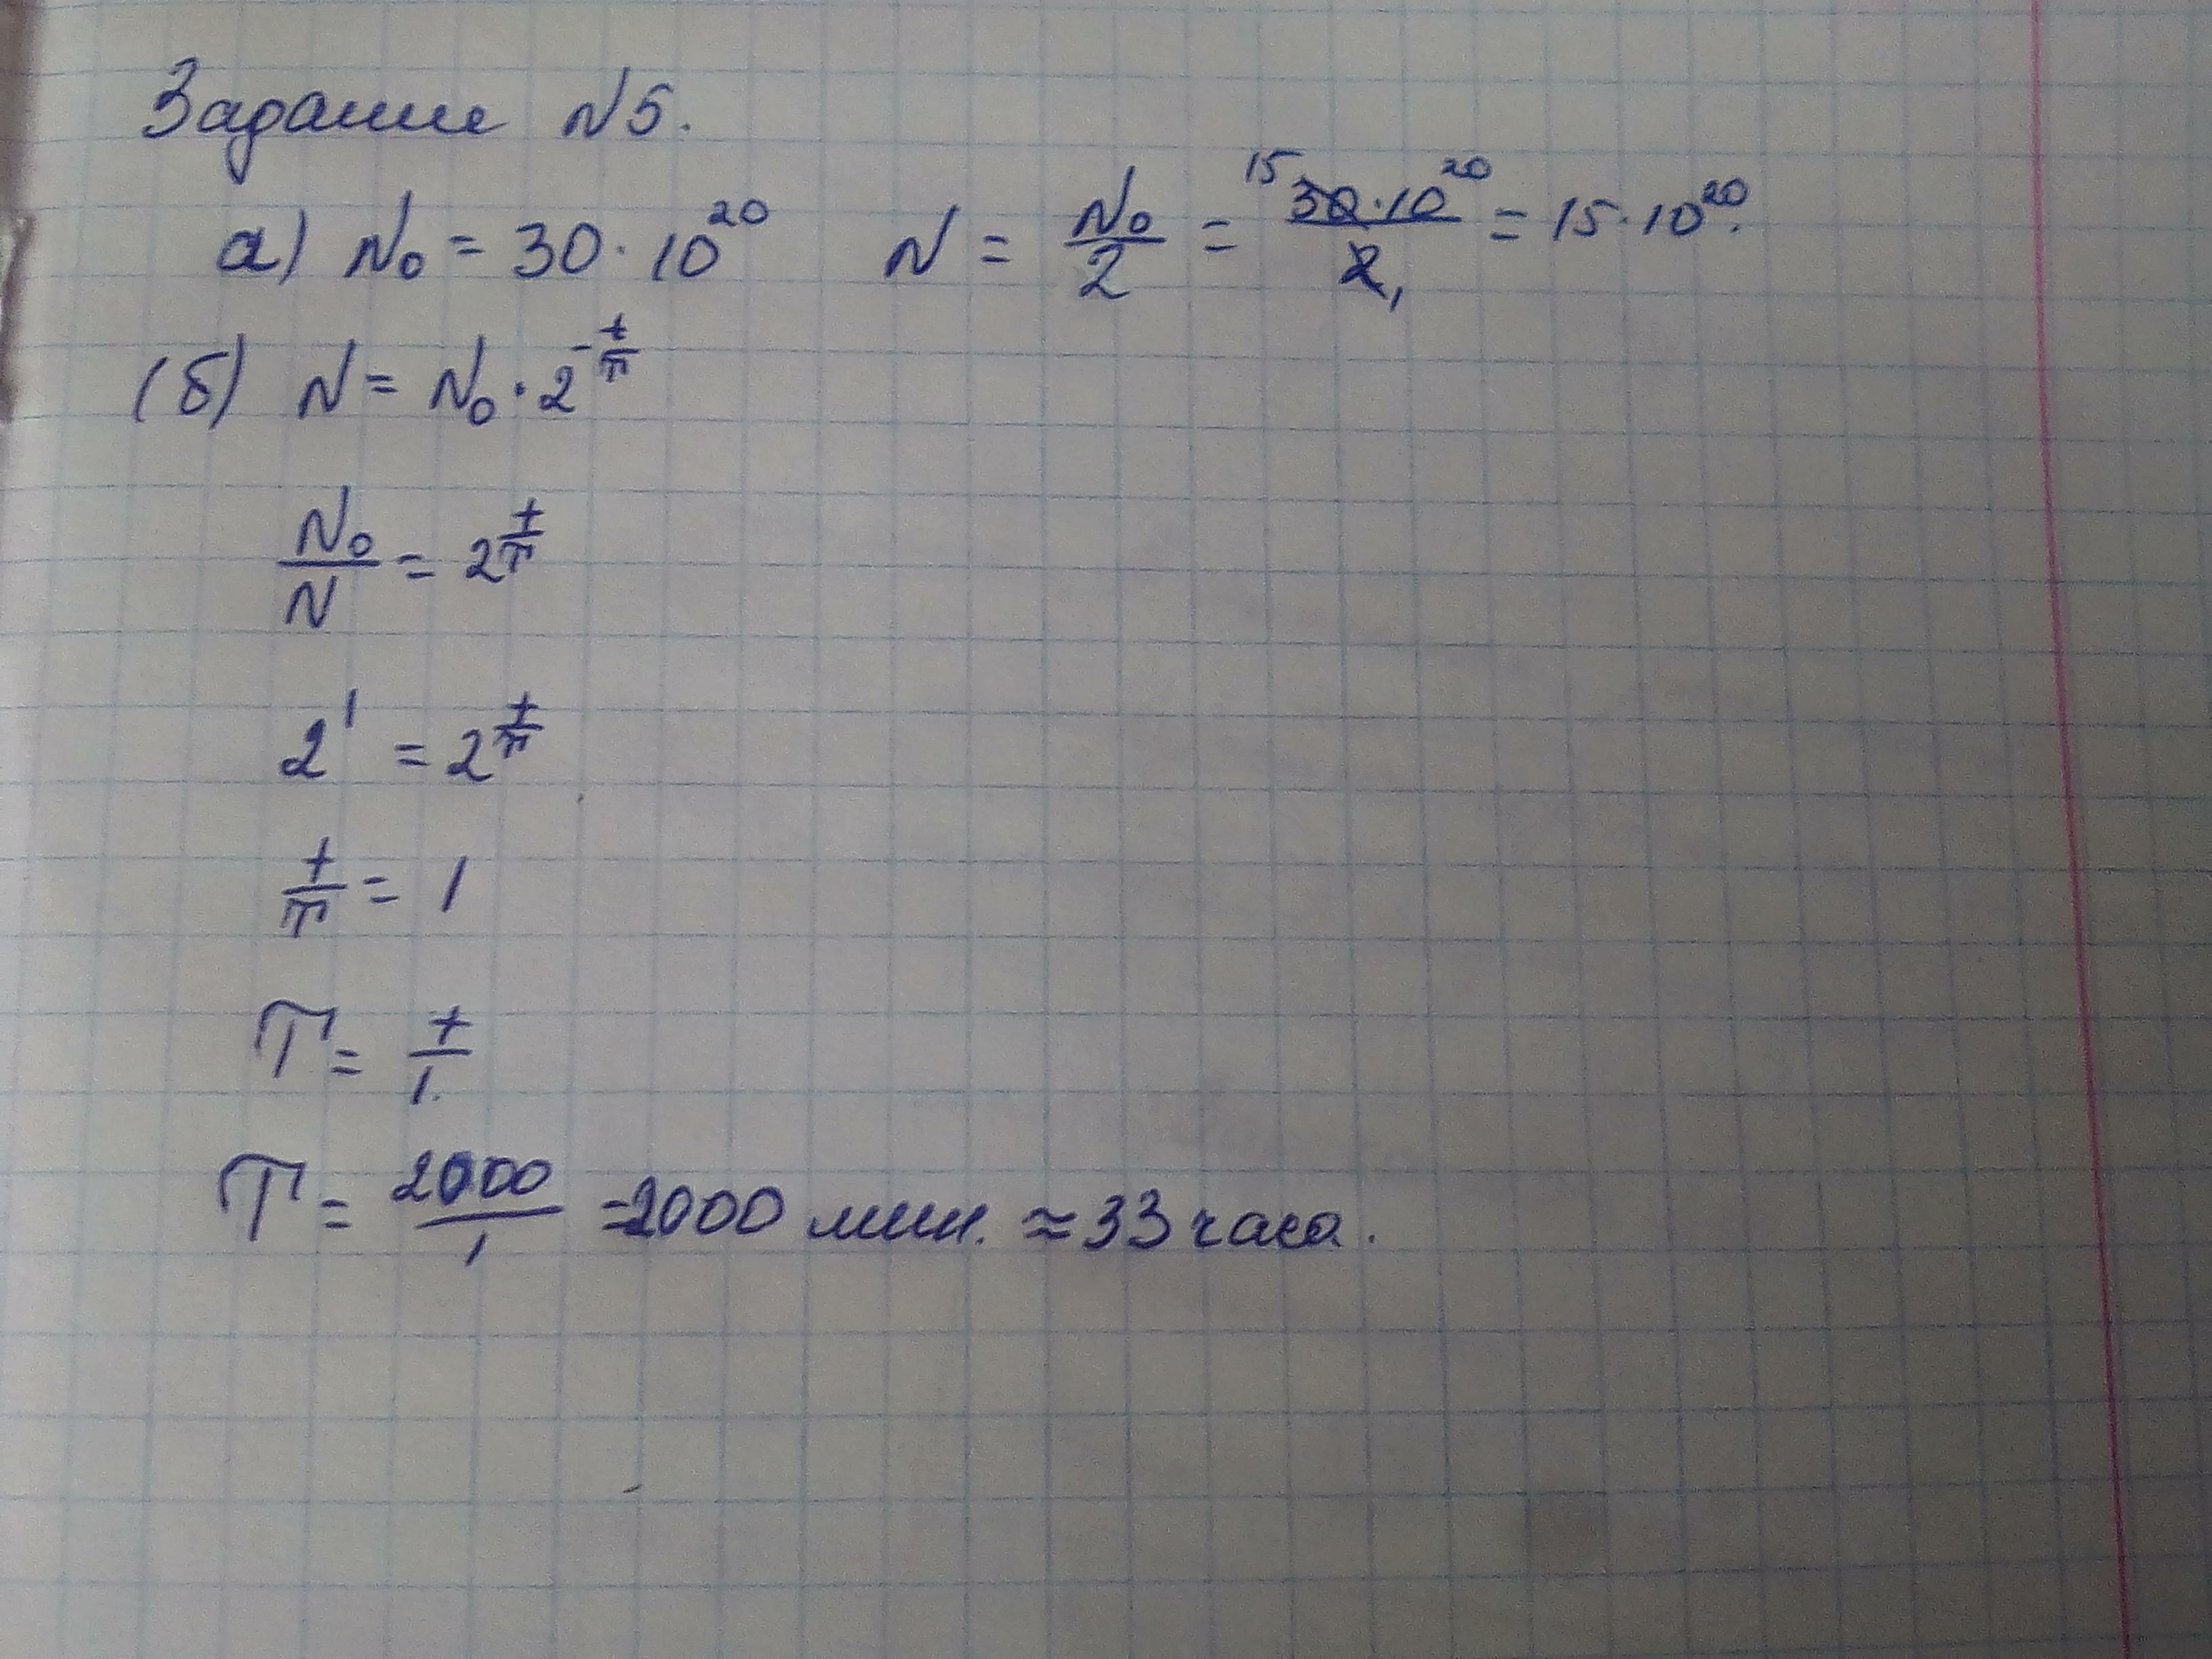 Задание №5.
а) N₀ = 30 · 10²⁰ N = N₀/2 = 15 30·10²⁰/2, 1 = 15·10²⁰.
(б) N = N₀ · 2^(-t/T)
N₀/N = 2^(t/T)
2¹ = 2^(t/T)
t/T = 1
T = t/1.
T = 2000/1 = 2000 мин. ≈ 33 часа.